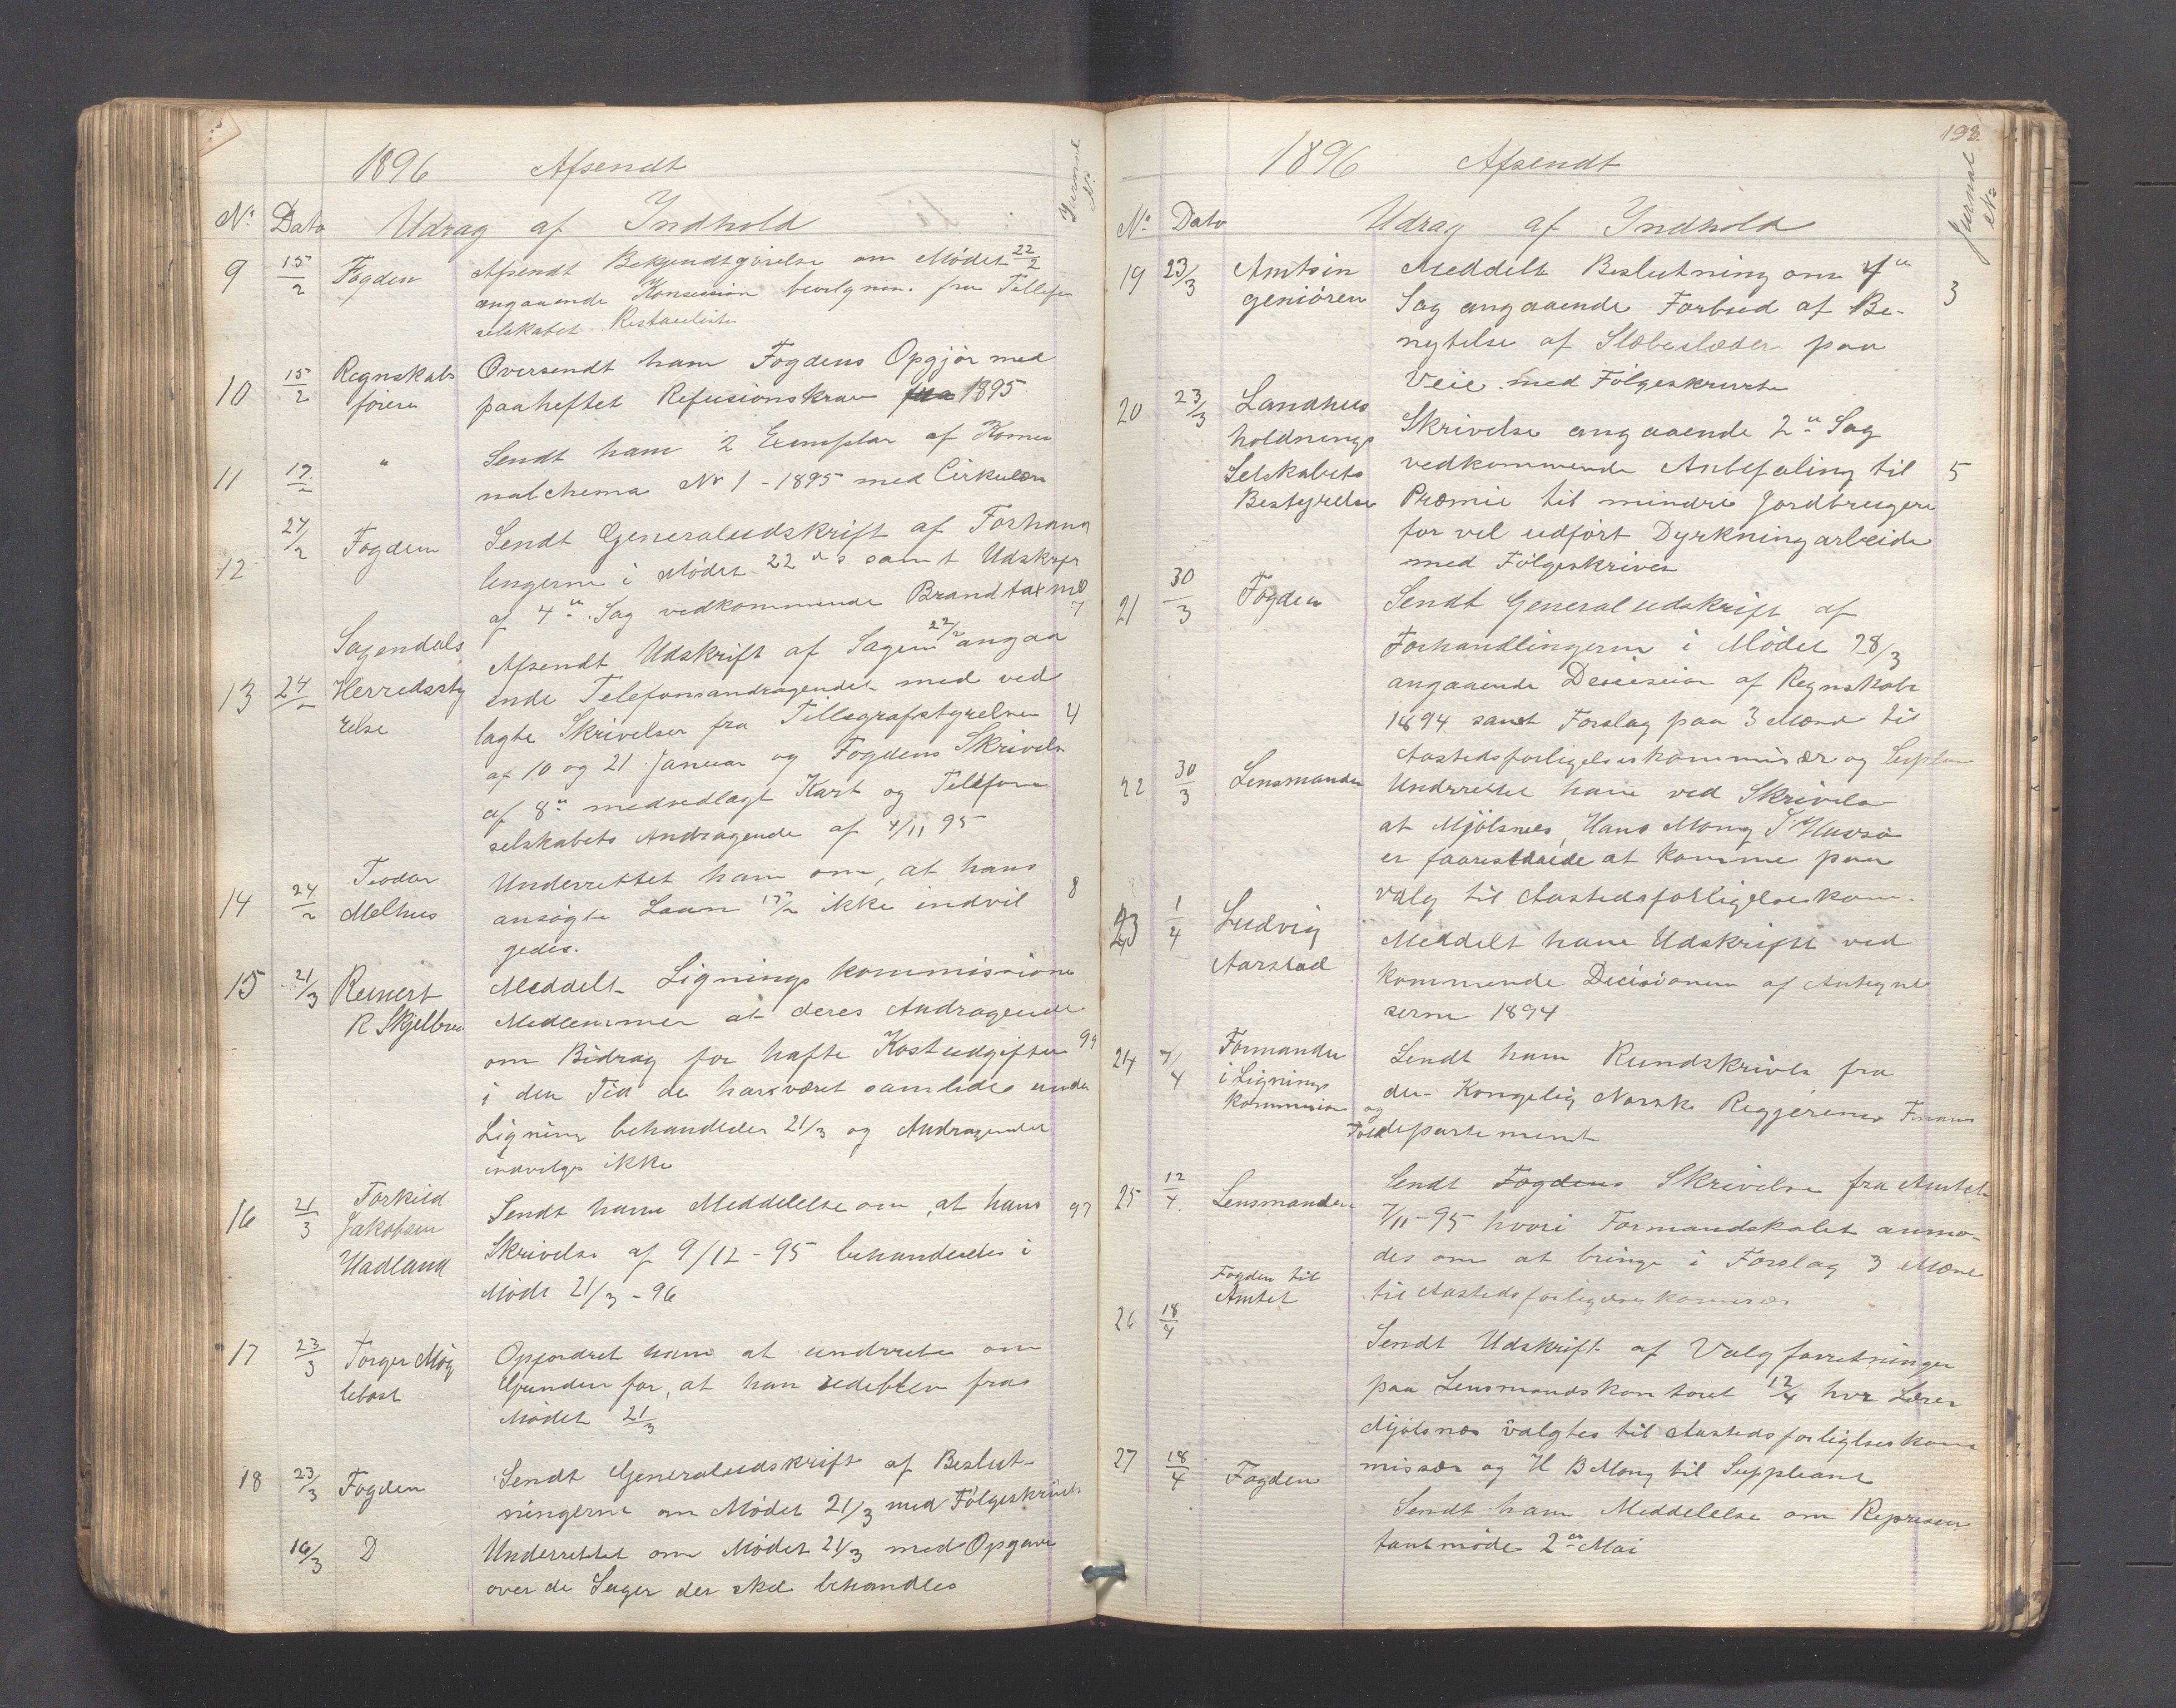 1896 Afsendt
Journal No
No Dato Udrag af Indhold
9 15/2 Fogden Afsendt Bekjendtgjörelse om Mödet 22/2
angaaende Konsession bevilgnin. fra Tellefon
selskabet Restanceliste
10 15/2 Regnskabs Oversendt ham Fogdens Opgjör med
förer paaheftet Refusionskrav fra 1895
11 19/2 " Sendt ham 2 Exemplar af Komu
nalschema No 1 - 1895 med Cirkulære
12 24/2 Fogden Sendt Generaludskrift af Forhand
lingerne i Mödet 22 ds samt Udskrift
af 4de Sag vedkommende Brandtaxmd 7
13 24/2 Sogendals Afsendt Udskrift af Sagen 22/2 angaa
Herredssty ende Telefonandragendet med ved
relse lagte Skrivelser fra Tellegrafstyrelsen 4
af 10 og 21 Januar og Fogdens Skrivelse
af 8de medvedlagt Kart og Telefon
selskabets Andragende af 4/11 95
14 24/2 Teodor Underrettet ham om, at hans 8
Melhus ansögte Laan 15/2 ikke indvil
gedes.
15 21/3 Reinert Meddelt Ligningskommissions
R Skjelbred Medlemmer at deres Andragende
om Bidrag for hafte Kostudgifter 94
i den Tid de har været samlede under
Ligning behandledes 21/3 og Andragendet
indvilges ikke
16 21/3 Torkild Sendt ham Meddelelse om, at hans 97
Jakobsen Skrivelse af 9/12 - 95 behandledes i
Hadland Möde 21/3 - 96
17 23/3 Torger Mög Opfordret ham at underrette om
lebost Grunden for, at han udeblev fra
Mödet 21/3
18 23/3 Fogden Sendt Generaludskrift af Beslut-
ningerne om Mödet 21/3 med Fölgeskrivelse
16/3 D Underrettet om Mödet 21/3 med Opgave
over de Sager der skal behandles
193.
1896 Afsendt
Journal No
No Dato Udrag af Indhold
19 23/3 Amtsin Meddelt Beslutning om 4de
geniören Sag angaaende Forbud af Be- 3
nytelse af Slæbeslæder paa
Veie med Fölgeskrivelse
20 23/3 Landhus Skrivelse angaaende 2den Sag
holdnings vedkommende Anbefaling til 5
Selskabets Præmie til mindre Jordbrugere
Bestyrelse for vel udfört Dyrkningarbeide
med Fölgeskrivelse
21 30/3 Fogden Sendt Generaludskrift af
Forhandlingerne i Mödet 28/3
angaaende Desiseion af Regnskabe
1894 samt Forslag paa 3 Mænd til
Aastedsforligelseskommisær og Suplean
22 30/3 Lensmanden Underrettet ham ved Skrivelse
at Mjölsnes, Hans Mong,
er faareslaaede at komme paa
valg til Aastedsforligelseskom.
23 1/4 Ludvig Meddelt ham Udskrift ved
Aarstad kommende Decisionen af Antegnel
serne 1894
24 7/4 Formanden Sendt ham Rundskrivelse fra
i Lignings den Kongelig Norske Regjerings Finans
kommision og Told departement
25 12/4 Lensmanden Sendt Fogdens Skrivelse fra Amtet
7/11-95 hvori Formandskabet anmo-
des om at bringe i Forslag 3 Mænd
til Aastedsforligelseskommisær
26 18/4 Fogden til Amtet Sendt Udskrift af Valgforretningen
paa Lensmandskontoret 12/4 hvor Lærer
Mjölsnes valgtes til Aastedsforligelseskom
missær og H B Mong til Suppleant
27 18/4 Fogden Sendt ham Meddelelse om Represen
tantmöde 2den Mai